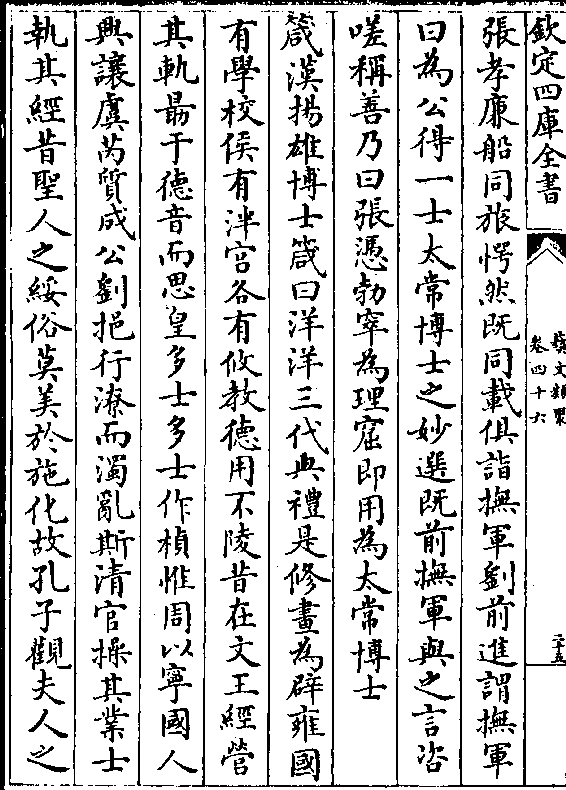 欽定四庫全書
藝文類聚
卷四十六
二十五
張孝廉船同旅愕然既同載俱詣撫軍劉前進謂撫軍
曰為公得一士太常博士之妙選既前撫軍與之言咨
嗟稱善乃曰張憑勃窣為理窟即用為太常博士
箴漢揚雄博士箴曰洋洋三代典禮是修畫為辟雍國
有學校侯有泮宮各有攸教德用不陵昔在文王經營
其軌勗于德音而思皇多士多士作楨惟周以寧國人
興讓虞芮質成公劉挹行潦而濁亂斯清官操其業士
執其經昔聖人之綏俗莫美於施化故孔子觀夫人之